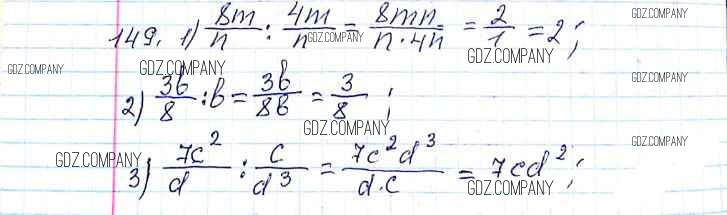 149. 1) 8m/n : 4m/n = 8mn/n·4n = 2/1 = 2;
2) 3b/8 : b = 3b/8b = 3/8;
3) 7c²/d : c/d³ = 7c²d³/d·c = 7cd²;
GDZ.COMPANY
GDZ.COMPANY
GDZ.COMPANY
GDZ.COMPANY
GDZ.COMPANY
GDZ.COMPANY
GDZ.COMPANY
GDZ.COMPANY
GDZ.COMPANY
GDZ.COMPANY
GDZ.COMPANY